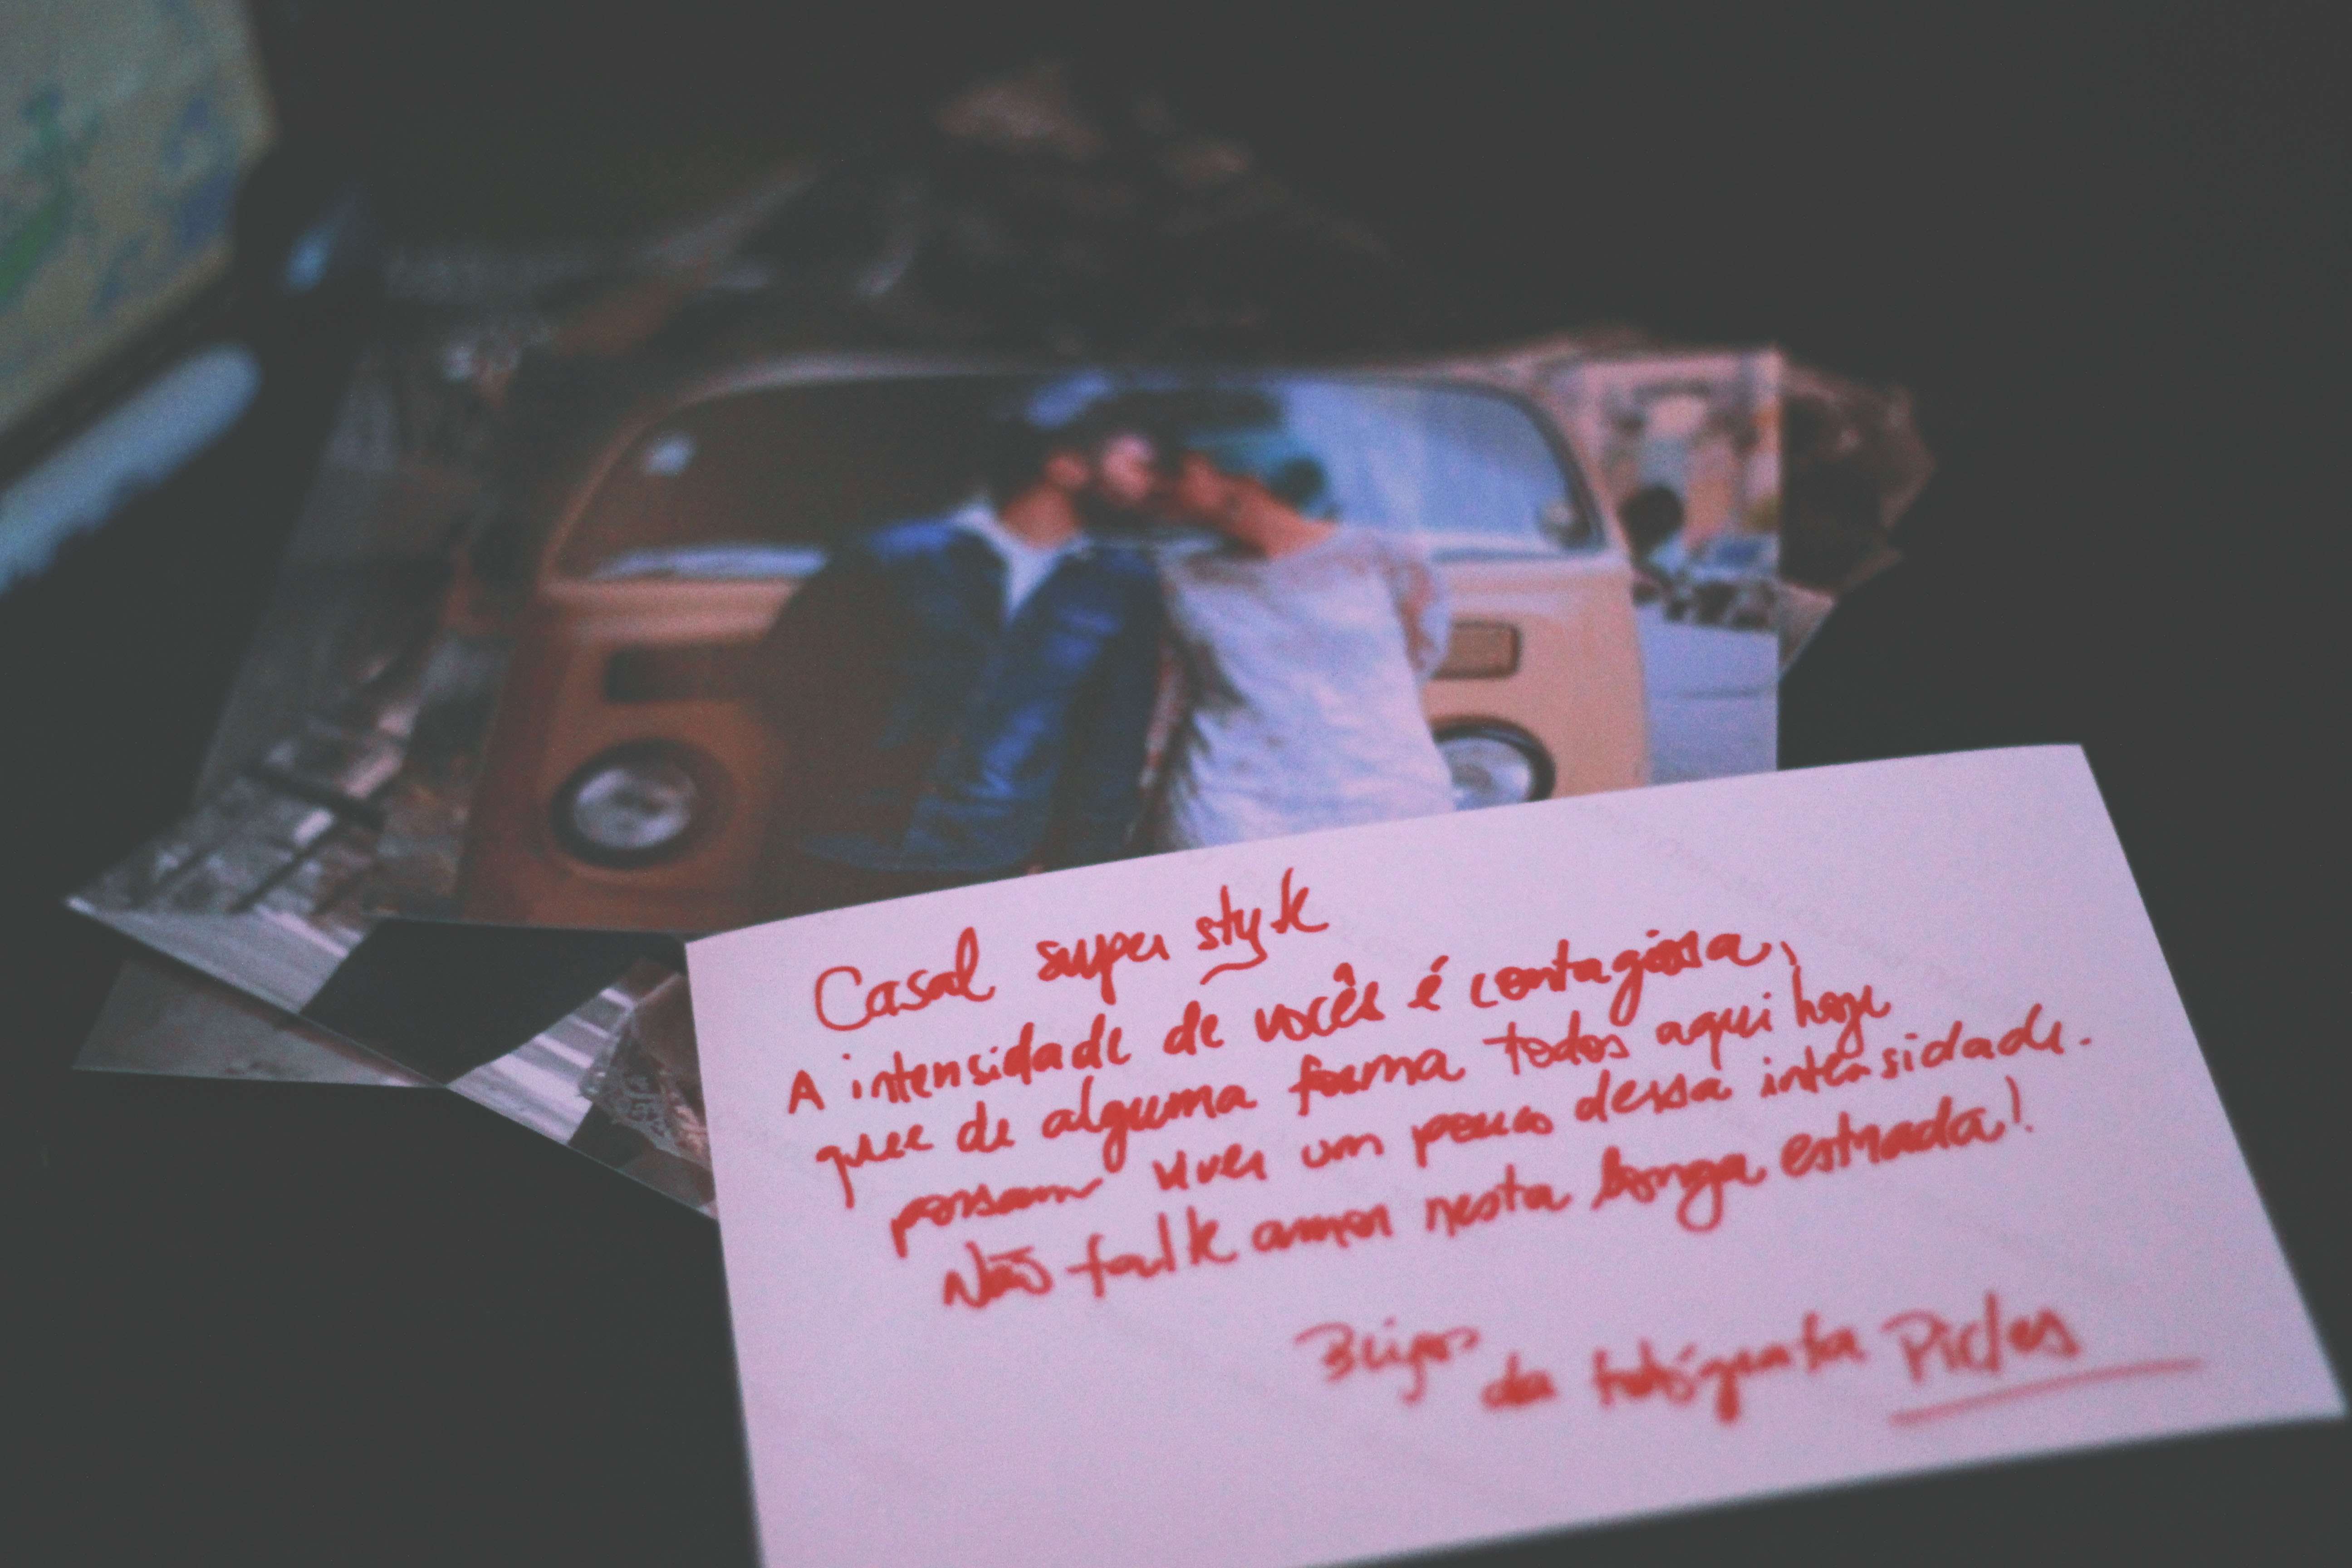 Casal super style
A intensidade de vocês é contagiosa,
que de alguma forma todos aqui hoje
possam viver um pouco dessa intensidade.
Não falte amor nesta longa estrada!
Beijos da fotógrafa Picles